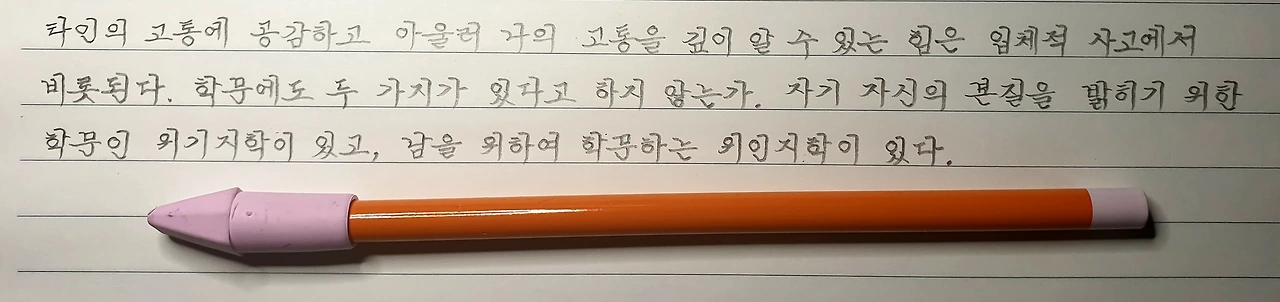 타인의 고통에 공감하고 아울러 나의 고통을 깊이 알 수 있는 힘은 입체적 사고에서
비롯된다. 학문에도 두 가지가 있다고 하지 않는가. 자기 자신의 본질을 밝히기 위한
학문인 위기지학이 있고, 남을 위하여 학문하는 위인지학이 있다.